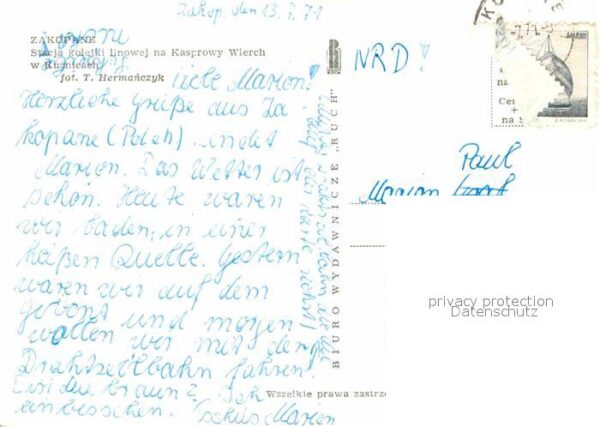 Zakop. den 13.7.71
ZAKOPANE
Stacja kolejki linowej na Kasprowy Wierch
w Kuźnicach
fot. T. Hermańczyk
Liebe Marion!
Herzliche Grüße aus Za
kopane (Polen) sendet
Marion. Das Wetter ist
schön. Heute waren
wir baden, in einer
heißen Quelle. Gestern
waren wir auf dem
und morgen
wollen wir mit der
Drahtseilbahn fahren!
Bist du braun? Ich
ein bisschen. Tschüs Marion
BIURO WYDAWNICZE „RUCH"
Wszelkie prawa zastrz
NRD!
Paul
Marion
privacy protection
Datenschutz